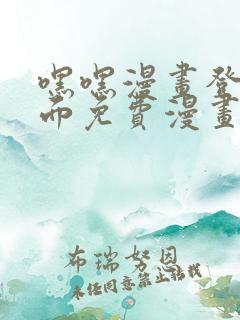 嘿嘿漫畫登
面免費漫畫
布瑞努因
未经同意禁止转载